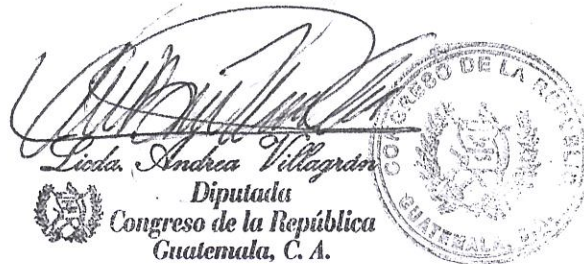 Licda. Andrea Villagrán
Diputada
Congreso de la República
Guatemala, C. A.
CONGRESO DE LA REPUBLICA
GUATEMALA, C.A.